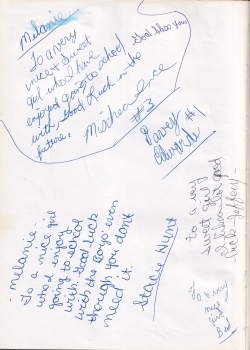 Melanie
To a very
nice & sweet
girl whod have
enjoyed going to school
with. Good Luck in the
future.
#3
Davey #1
Edwards
- melanie -
To a nice girl
whod enjoy
going to school
with. Good luck
with the Boys even
though you dont
need it.
Stacey Hunt
To a very
sweet girl
good
luck Jeffery -
To a very
nice
girl